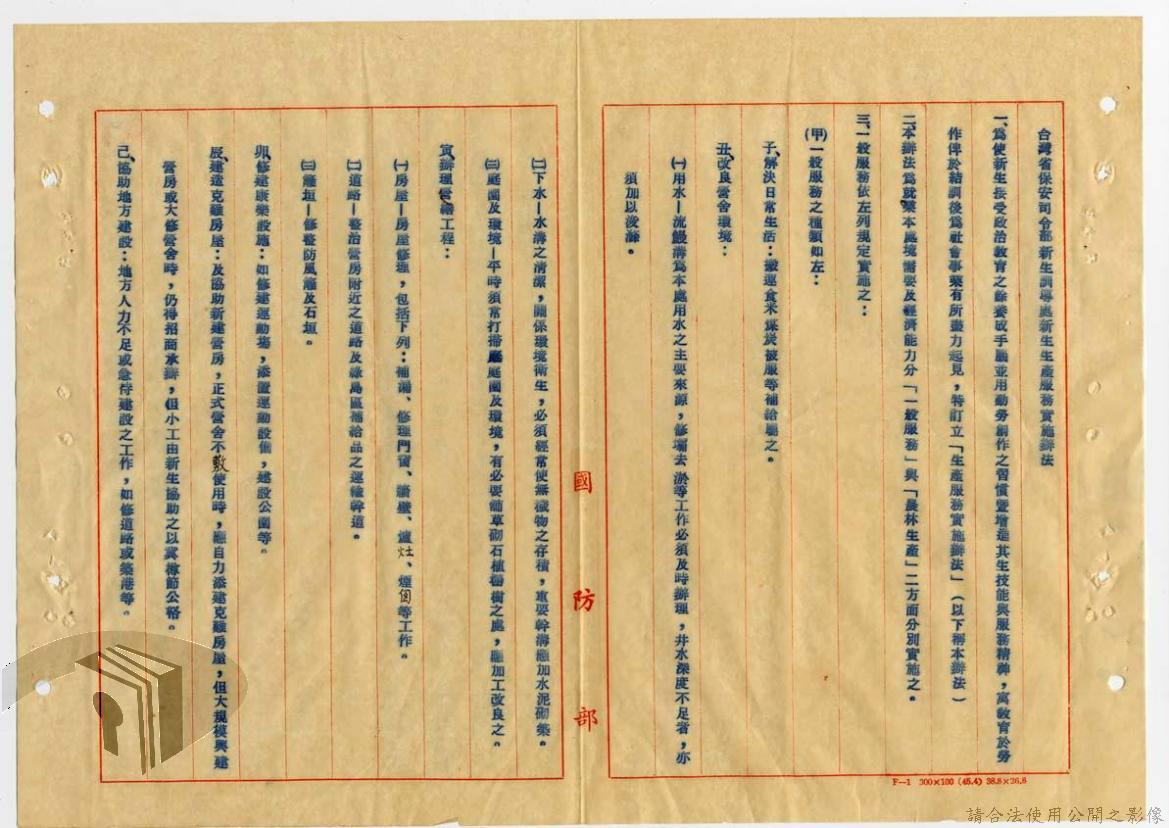 台灣省保安司令部新生訓導處新生生產服務實施辦法
一、為使新生接受政治教育之餘養成手腦並用勞動創作之習慣暨增進其生技能與服務精神，寓教育於勞
作俾於結訓後為社會事業有所盡力起見，特訂立「生產服務實施辦法」（以下稱本辦法）
二、本辦法為就業本處境需要及經濟能力分「一般服務」與「農林生產」二方面分別實施之。
三、一般服務依左列規定實施之：
(甲)一般服務之種類如左：
子、解決日常生活：搬運食米煤炭被服等補給屬之。
丑、改良營舍環境：
㈠用水－流鰻溝為本處用水之主要來源，修壩去淤等工作必須及時辦理，井水深度不足者，亦
須加以浚滌。
國防部
㈡下水－水溝之清潔，關係環境衛生，必須經常使無穢物之存積，重要幹溝應加水泥砌築。
㈢庭園及環境－平時須常打掃庭園及環境，有必要舖草砌石植樹之處，應加工改良之。
寅、辦理營繕工程：
㈠房屋－房屋修理，包括下列：補漏、修理門窗、牆壁、爐灶、煙囪等工作。
㈡道路－整治營房附近之道路及綠島區補給品之運輸幹道。
㈢籬垣－修整防風籬及石垣。
卯、修建康樂設施：如修建運動場，添置運動設備，建設公園等。
辰、建造克難房屋：及協助新建營房，正式營舍不敷使用時，應自力添建克難房屋，但大規模興建
營房或大修營舍時，仍得招商承辦，但小工由新生協助之以冀撙節公帑。
己、協助地方建設：地方人力不足或急待建設之工作，如修道路或築港等。
F—1 300×100 (45.4) 38.8×26.8
請合法使用公開之影像